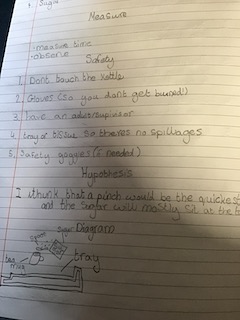 4. Sugar
Measure
· measure time
· observe
Safety
1. Dont touch the kettle
2. Gloves (so you don't get burned!)
3. have an adult supervisor
4. tray or tissue so theres no spillages
5. Safety goggles (if needed)
Hypothesis
I think that a pinch would be the quickest
and the sugar will mostly sit at the
Diagram
spoon
sugar
tea
mug
tray